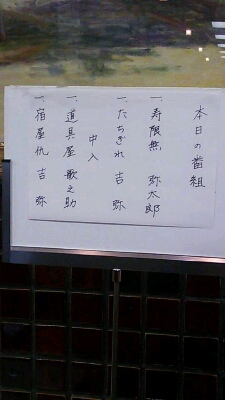 本日の番組
一、寿限無 弥太郎
一、たちぎれ 吉弥
中入
一、道具屋 歌之助
一、宿屋仇 吉弥